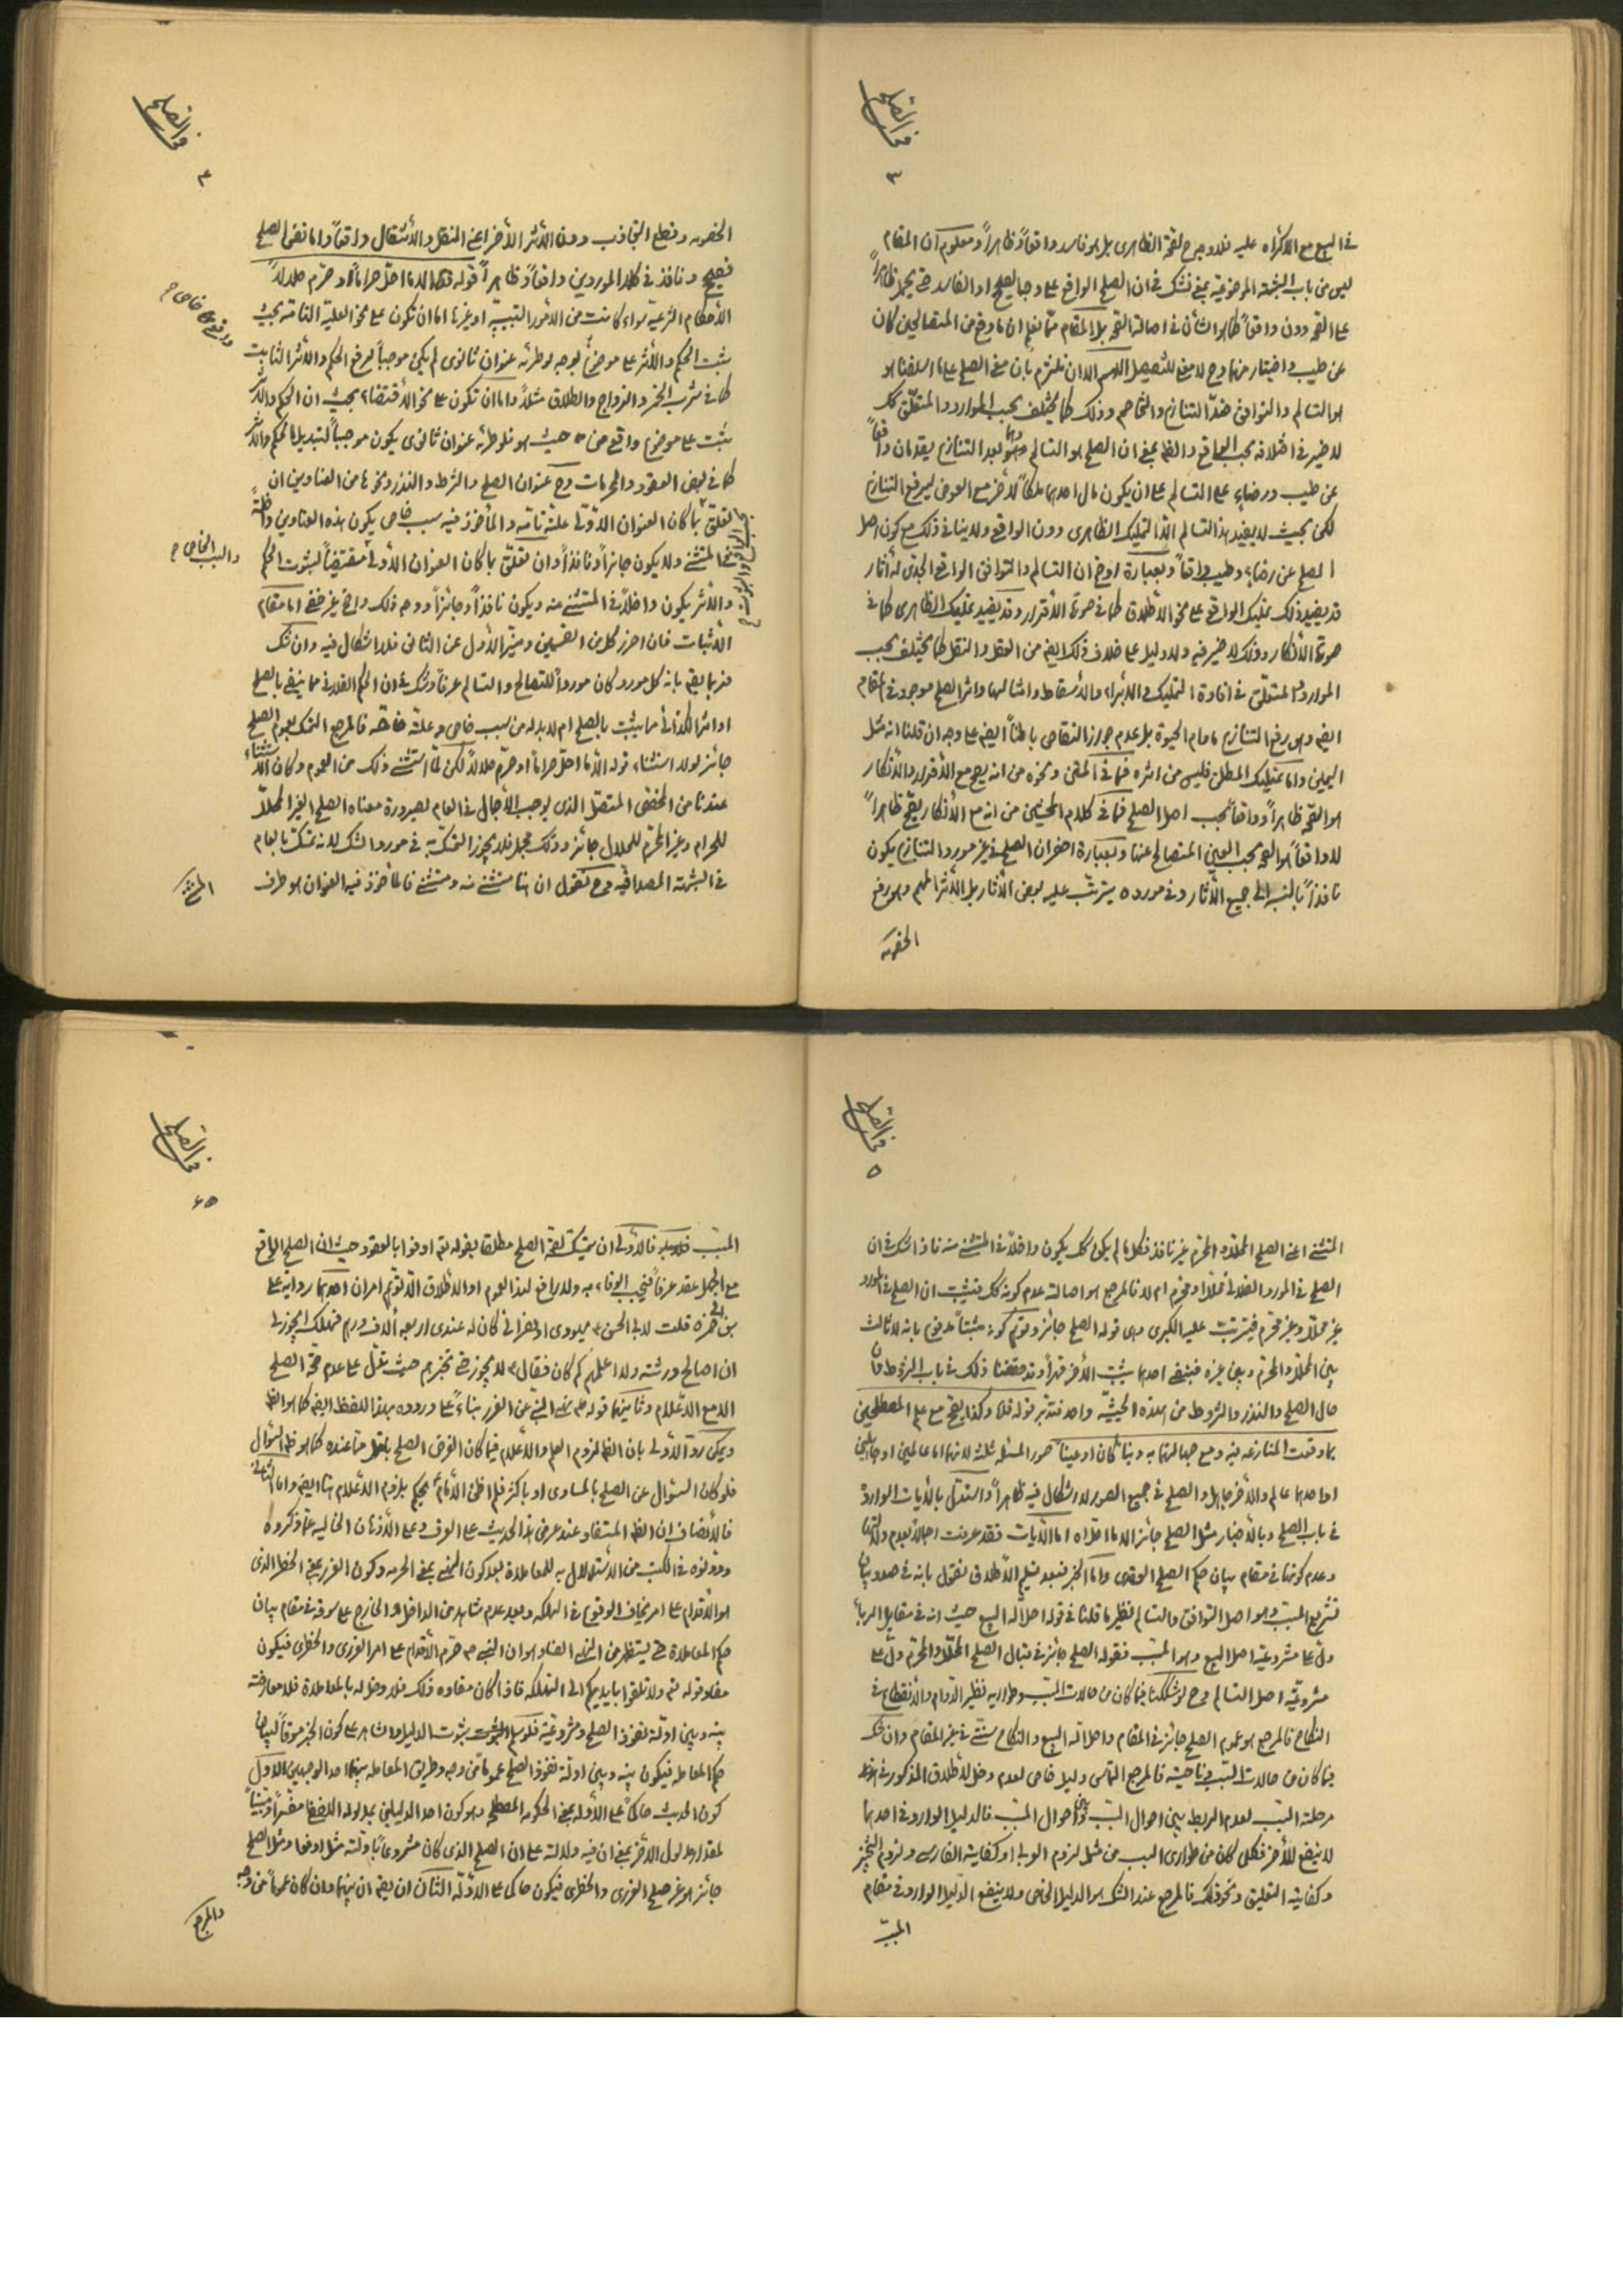 في الصلح
٣
في البيع مع الاكراه عليه فلا وجه لصحة الظاهرى بل هو فاسد واقعاً وظاهراً ومعلوم ان المقام
ليس من باب الشبهة الموضوعية بمعنى نشك في ان الصلح الواقع على وجه الصلح او الفاسد حتى يحمل ظاهراً
على الصحة دون واقعاً كما هو الشأن في اصالة الصحة بل المقام مما نعلم ان ما وقع من المتصالحين كان
عن طيب واختيار منهما وح لا معنى للتفصيل اللهم الا ان نلتزم بان معنى الصلح على ما اسلفنا هو
هو التسالم والتوافق ضد التنازع والتخاصم وذلك كما يختلف بحسب الموارد والمتعلق كك
لا ضير في اختلافه بحسب الواقع والظ بمعنى ان الصلح هو التسالم وهما بعد التنازع يقدمان واقعاً
عن طيب ورضاء على التسالم على ان يكون مال احدهما ملكاً للاخر مع العوض ليرفع التنازع
لكن بحيث لا يفيد هذا التسالم الا التمليك الظاهرى دون الواقعى ولا ينافى ذلك مع كون اصل
الصلح عن رضاء وطيب واقعاً وبعبارة اوضح ان التسالم والتوافق الواقعى الجدى له آثار
قد يفيد ذلك تمليك الواقعى على نحو الاطلاق كما في صورة الاقرار وقد يفيد تمليك الظاهرى كما في
صورة الانكار وذلك لا ضير فيه ولا دليل على خلاف ذلك ايضا من العقل والنقل كما يختلف بحسب
الموارد والمتعلق في افادة التمليك والابراء والاسقاط وامثالها واثر الصلح موجود في المقام
ايضا وهو رفع التنازع مادام الحيوة بل عدم جواز التقاص باطناً ايضا على وجه ان قلنا انه مثل
اليمين واما تمليك المطلق فليس من اثره فما في المتن ونحوه من انه يصح مع الاقرار والانكار
هو الصحة ظاهراً وواقعاً بحسب اصل الصلح فما في كلام المحشين من ان مع الانكار يصح ظاهراً
لا واقعاً هو الصحة بحسب العين المتصالح عنها وبعبارة اخرى ان الصلح في غير مورد التنازع يكون
نافذاً بالنسبة الى جميع الآثار وفي مورده يترتب عليه بعض الآثار بل الاثر المهم وهو رفع
الخصومة
في الصلح
٤
الخصومة وقطع التجاذب دون الاثر الاخر اعنى النقل والانتقال واقعاً واما نفس الصلح
فصحيح ونافذ في كلا الموردين واقعاً وظاهراً قوله الا ما احل حراماً او حرم حلالاً
الاحكام الشرعية سواء كانت من الامور السببية او غيرها اما ان تكون على نحو العلية التامة بحيث
يثبت الحكم والاثر على موضوع بوجه لو طرئه عنوان ثانوى لم يكن موجباً لرفع الحكم والاثر الثابت
كما في شرب الخمر والزواج والطلاق مثلاً واما ان تكون على نحو الاقتضاء بحيث ان الحكم والاثر
يثبت على موضوع واقعى من حيث هو فلو طرئه عنوان ثانوى يكون موجباً لتبديل الحكم والاثر
كما في بعض العقود والمحرمات وح عنوان الصلح والشرط والنذر ونحوها من العناوين ان
تعلق بما كان العنوان الاولى علة تامة والمأخوذ فيه سبب خاص يكون هذه العناوين داخلة
في المستثنى ولا يكون جائزاً ونافذاً وان تعلق بما كان العنوان الاولى مقتضياً لثبوت الحكم
والسبب الخاص
والاثر يكون داخلاً في المستثنى منه ويكون نافذاً وجائزاً ووجه ذلك واضح غير خفى اما مقام
الاثبات فان احرز كل من القسمين وميز الاول عن الثانى فلا اشكال فيه وان شك
فربما يقال بانه كل مورد كان مورداً للتصالح والتسالم عرفاً وشك في ان الحكم الفلانى مما ينتفى بالصلح
او اثر الكذائى مما يثبت بالصلح ام لا بد له من سبب خاص وعلة خاصة فالمرجع التمسك بعموم الصلح
جائز لولا استثناء قوله الا ما احل حراماً او حرم حلالاً لكن لما استثنى ذلك من العموم وكان الاستثناء
عندنا من المخصص المتصل الذى يوجب الاجمال في العام لصيرورة معناه الصلح الغير المحلل
للحرام وغير المحرم للحلال جائز وذلك مجمل فلا يجوز التمسك به في مورد الشك لانه تمسك بالعام
في الشبهة المصداقية وح نقول ان هنا مستثنى منه ومستثنى فالمأخوذ فيه العنوان هو طرف
المستثنى
في الصلح
٥
المستثنى اعنى الصلح المحلل والمحرم غير نافذ فكل ما لم يكن كك يكون داخلاً في المستثنى منه فاذا شك في ان
الصلح في المورد الفلانى محللاً او محرم ام لا فالمرجع هو اصالة عدم كونه كك فيثبت ان الصلح في المورد
غير محلل وغير محرم فيترتب عليه الكبرى وهى قوله الصلح جائز وتوهم كونه مثبتاً مدفوع بانه لا ثالث
بين المحلل والمحرم وبين غيره فبنفى احدهما يثبت الآخر قهراً وقد حققنا ذلك في باب الشروط فان
حال الصلح والنذر والشروط من هذه الحيثية واحد فتدبر قوله قدس وكذا يصح مع علم المصطلحين
بما وقعت المنازعة فيه ومع جهالتهما به ديناً كان او عيناً صور المسئلة ثلثة لانهما اما عالمين او جاهلين
او احدهما عالم والآخر جاهل والصلح في جميع الصور لا اشكال فيه ظاهراً واستدل بالآيات الواردة
في باب الصلح وبالأخبار مثل الصلح جائز الا ما اخلاه اما الآيات فقد عرفت اجمالها وعدم دلالتها
وعدم كونها في مقام بيان حكم الصلح العقدى واما الخبر فبعد تسليم الاطلاق نقول بانه في صدد بيان
تشريع المسبب وهو اصل التوافق والتسالم نظير ما قلنا في قوله احل الله البيع حيث انه في مقابل الربا
دل على مشروعية اصل البيع وهو المسبب فقوله الصلح جائز في قبال الصلح المحلل والمحرم دل على
مشروعية اصل التسالم وح لو شككنا فيما كان من حالات المسبب وطواريه نظير الدوام والانقطاع في
النكاح فالمرجع هو عموم الصلح جائز في المقام واحل الله البيع والنكاح سنتى في غير المقام وان شك
فيما كان من حالات السبب من ناحيته فالمرجع التماس دليل خاص لعدم دخل لاطلاق المذكور في
مرحلة السبب لعدم الربط بين احوال السبب وبين احوال المسبب فالدليل الوارد في احدهما
لا ينفع للآخر فكل كان من طوارى السبب من مثل لزوم العربى او كفاية الفارسى ولزوم التنجيز
وكفاية التعليق ونحو ذلك فالمرجع عند الشك هو الدليل الخاص ولا ينفع الدليل الوارد في مقام
المسبب
في الصلح
المسبب فالاولى ان يتمسك لصحة الصلح مطلقا بقوله تع اوفوا بالعقود حيث ان الصلح الواقع
مع الجهل عقد عرفاً فيجب الوفاء به ولا رافع لهذا العموم او الاطلاق الا توهم امران احدهما رواية على
بن ابى حمزة قلت لابى الحسن يهودى او نصرانى كان له عندى اربعة آلاف درهم فهلك ايجوز لى
ان اصالح ورثته ولا اعلمهم كم كان فقال لا يجوز حتى تخبرهم حيث تدل على عدم صحة الصلح
الا مع الاعلام وثانيهما قوله نهى النبى عن الغرر بناءً على وروده بهذا اللفظ ايضا كما هو الظ
ويمكن رد الاولى بان الظ لزوم العلم والاعلام فيما كان الغرض الصلح باقل مما عنده كما هو ظ السؤال
فلو كان السؤال عن الصلح بالمساوى او باكثر فلم اظن الامام يحكم بلزوم الاعلام هنا ايضا واما الثانى
فالانصاف ان الظ المستفاد عند عرض هذا الحديث على العرف وعلى الاذهان الخالية عما ذكروه
ودونوه في الكتب من الاستدلال به للمعاملة بعد كون النهى بمعنى الحرمة وكون الغرر بمعنى الخطر الذى
هو الاقدام على امر يخاف الوقوع في الهلكة وبعد عدم شاهد من الداخل والخارج على سوقه في مقام بيان
حكم المعاملة حتى يستظهر من النهى الفساد هو ان النبى حرم الاقدام على امر الغررى والخطرى فيكون
مفاد قوله تع ولا تلقوا بايديكم الى التهلكة فاذا كان مفاده ذلك فلا دخل له بالمعاملة فلا معارضة
بينه وبين ادلة نفوذ الصلح ومشروعيته فلو سلم ثبوت الدليل والشاهد على كون الخبر مسوقاً لبيان
حكم المعاملة فيكون بينه وبين ادلة نفوذ الصلح عموماً من وجه وطريق المعاملة بينهما احد الوجهين الاول
كون الحديث حاكماً على الادلة بمعنى الحكومة المصطلح وهو كون احد الدليلين بمدلوله اللفظى مفسراً ومبيناً
لمقدار مدلول الآخر بمعنى ان فيه دلالة على ان الصلح الذى كان مشروعاً بادلته مثل اوفوا ومثل الصلح
جائز هو غير صلح الغررى والخطرى فيكون حاكى على الادلة الثانى ان يقال ان بينهما وان كان عموماً من وجه
والمرجع